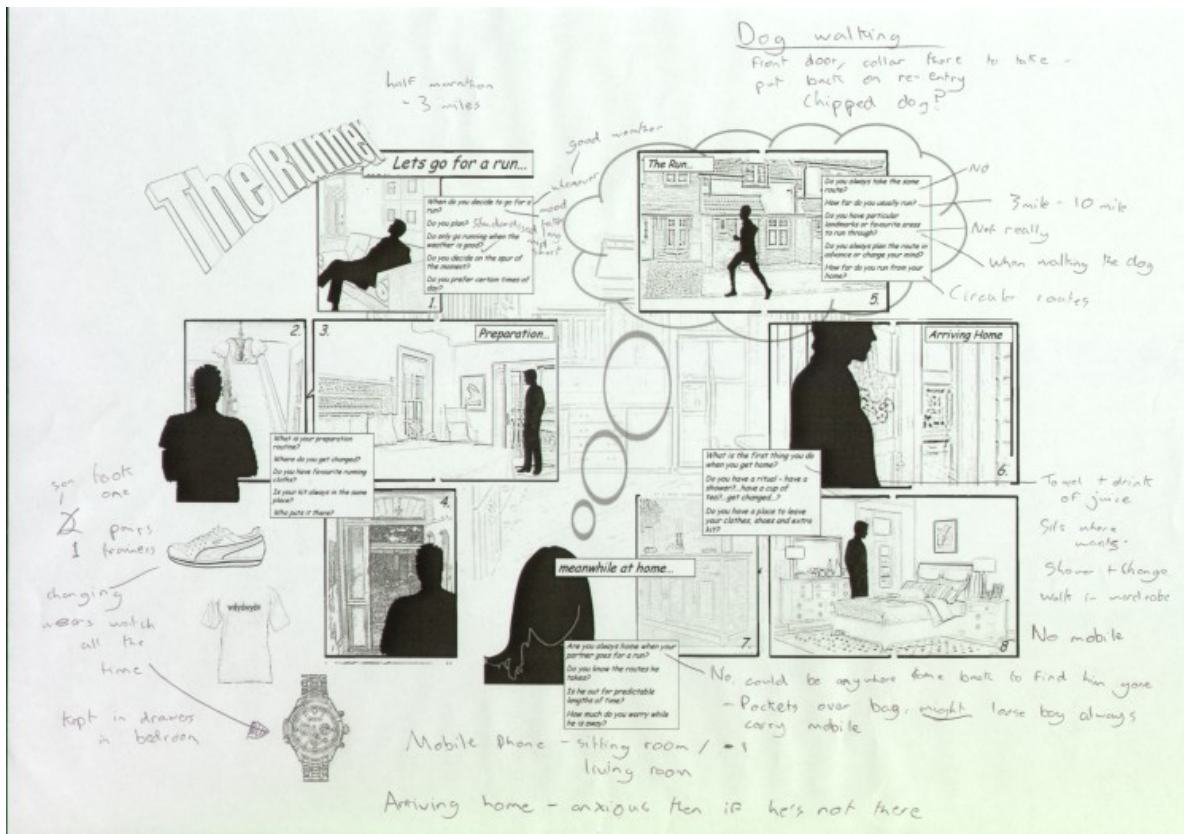 Dog walking
front door, collar there to take -
put back on re-entry
Chipped dog?
half marathon
- 3 miles
The Runner
Lets go for a run...
good weather
whenever
When do you decide to go for a
run?
mood
Do you plan?
Do only go running when the
weather is good?
Do you decide on the spur of
the moment?
Do you prefer certain times of
day?
1.
The Run...
Do you always take the same
route?
How far do you usually run?
Do you have particular
landmarks or favourite areas
to run through?
Do you always plan the route in
advance or change your mind?
How far do you run from your
home?
5.
No
3 mile - 10 mile
Not really
when walking the dog
Circular routes
2.
3.
Preparation...
What is your preparation
routine?
Where do you get changed?
Do you have favourite running
cloths?
Is your kit always in the same
place?
Who puts it there?
4.
Arriving Home
6.
What is the first thing you do
when you get home?
Do you have a ritual - have a
shower?...have a cup of
tea?..get changed...?
Do you have a place to leave
your clothes, shoes and extra
kit?
Towel + drink
of juice
Sits where
wants.
Shower + Change
Walk in wardrobe
No mobile
8
son took
one
2 pairs
1 trainers
changing
wears watch
all the
time
kept in drawers
in bedroom
meanwhile at home...
7.
Are you always home when your
partner goes for a run?
Do you know the routes he
takes?
Is he out for predictable
lengths of time?
How much do you worry while
he is away?
No, could be anywhere come back to find him gone
- Pockets over bag, might loose bag always
carry mobile
Mobile Phone - sitting room /
living room
Arriving home - anxious then if he's not there